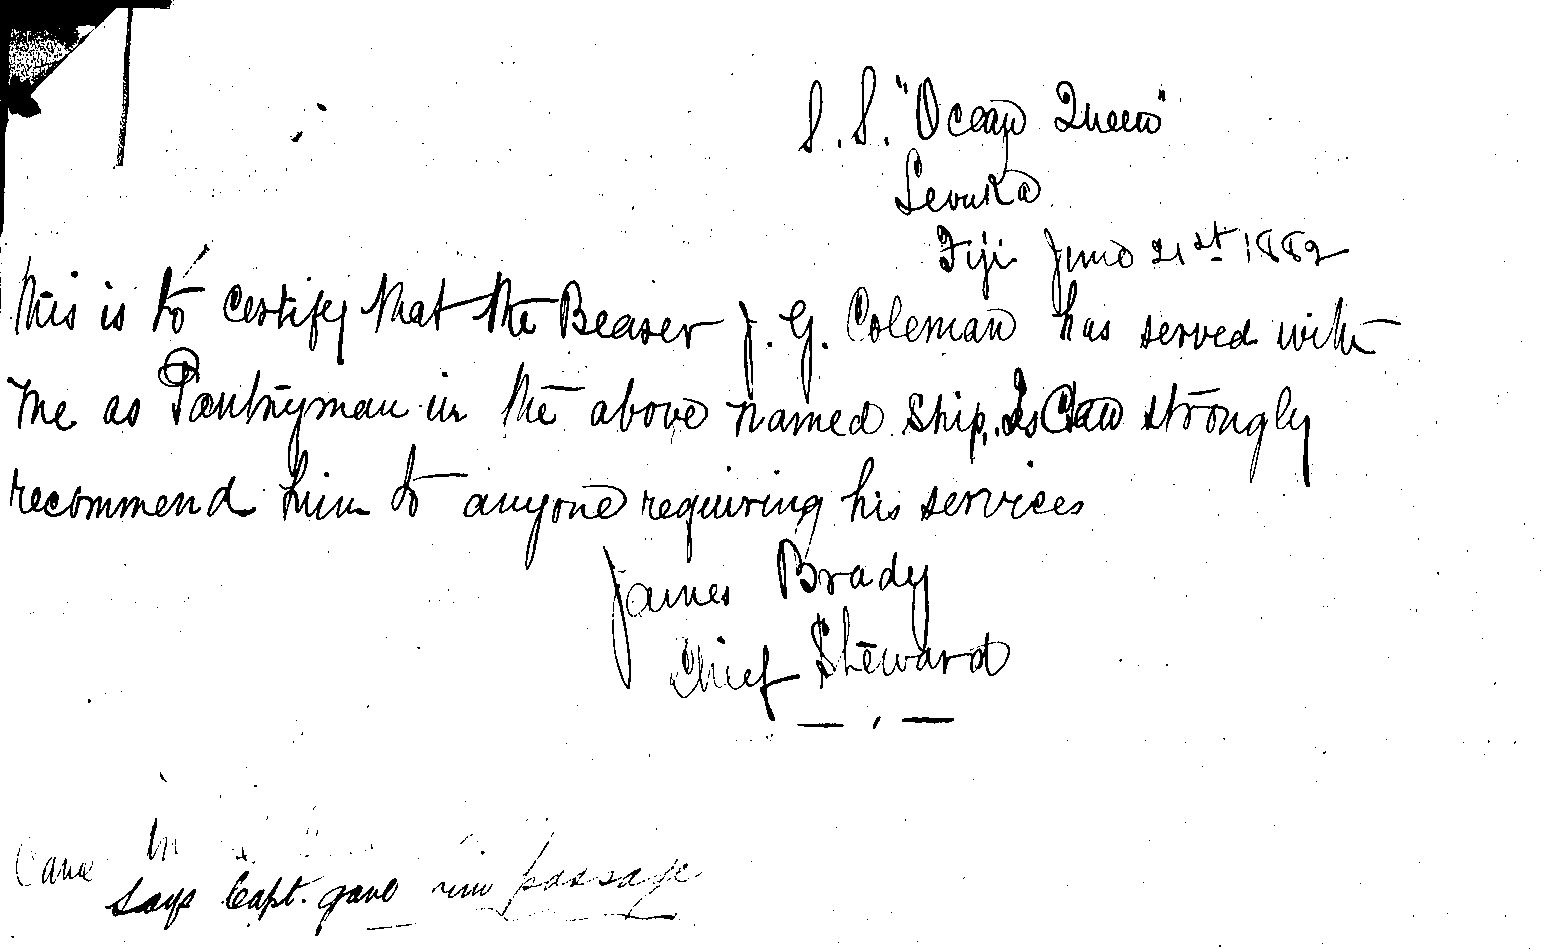 S. S. "Ocean Queen"
Levuka
Fiji June 21st 1882
This is to Certify that the Bearer J. G. Coleman has served with
me as Pantryman in the above named Ship, & Can strongly
recommend him to anyone requiring his services
James Brady
Chief Steward
Came in
says Capt. gave him passage